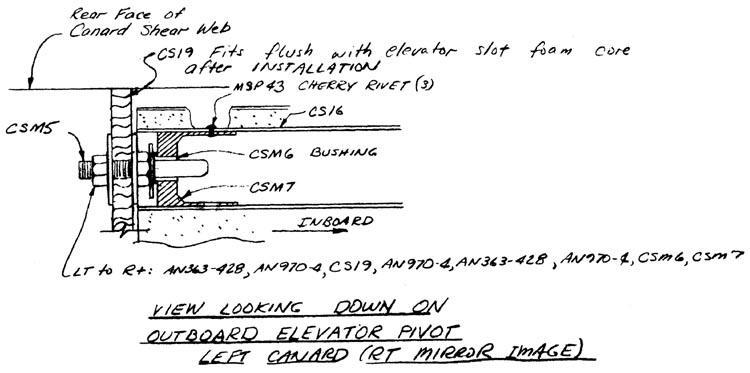 Rear Face of
Canard Shear Web
CS19 Fits flush with elevator slot foam core
after INSTALLATION
MSP43 CHERRY RIVET (3)
CS16
CSM5
CSM6 BUSHING
CSM7
INBOARD
LT to Rt: AN363-428, AN970-4, CS19, AN970-4, AN363-428, AN970-4, CSM6, CSM7
VIEW LOOKING DOWN ON
OUTBOARD ELEVATOR PIVOT
LEFT CANARD (RT MIRROR IMAGE)